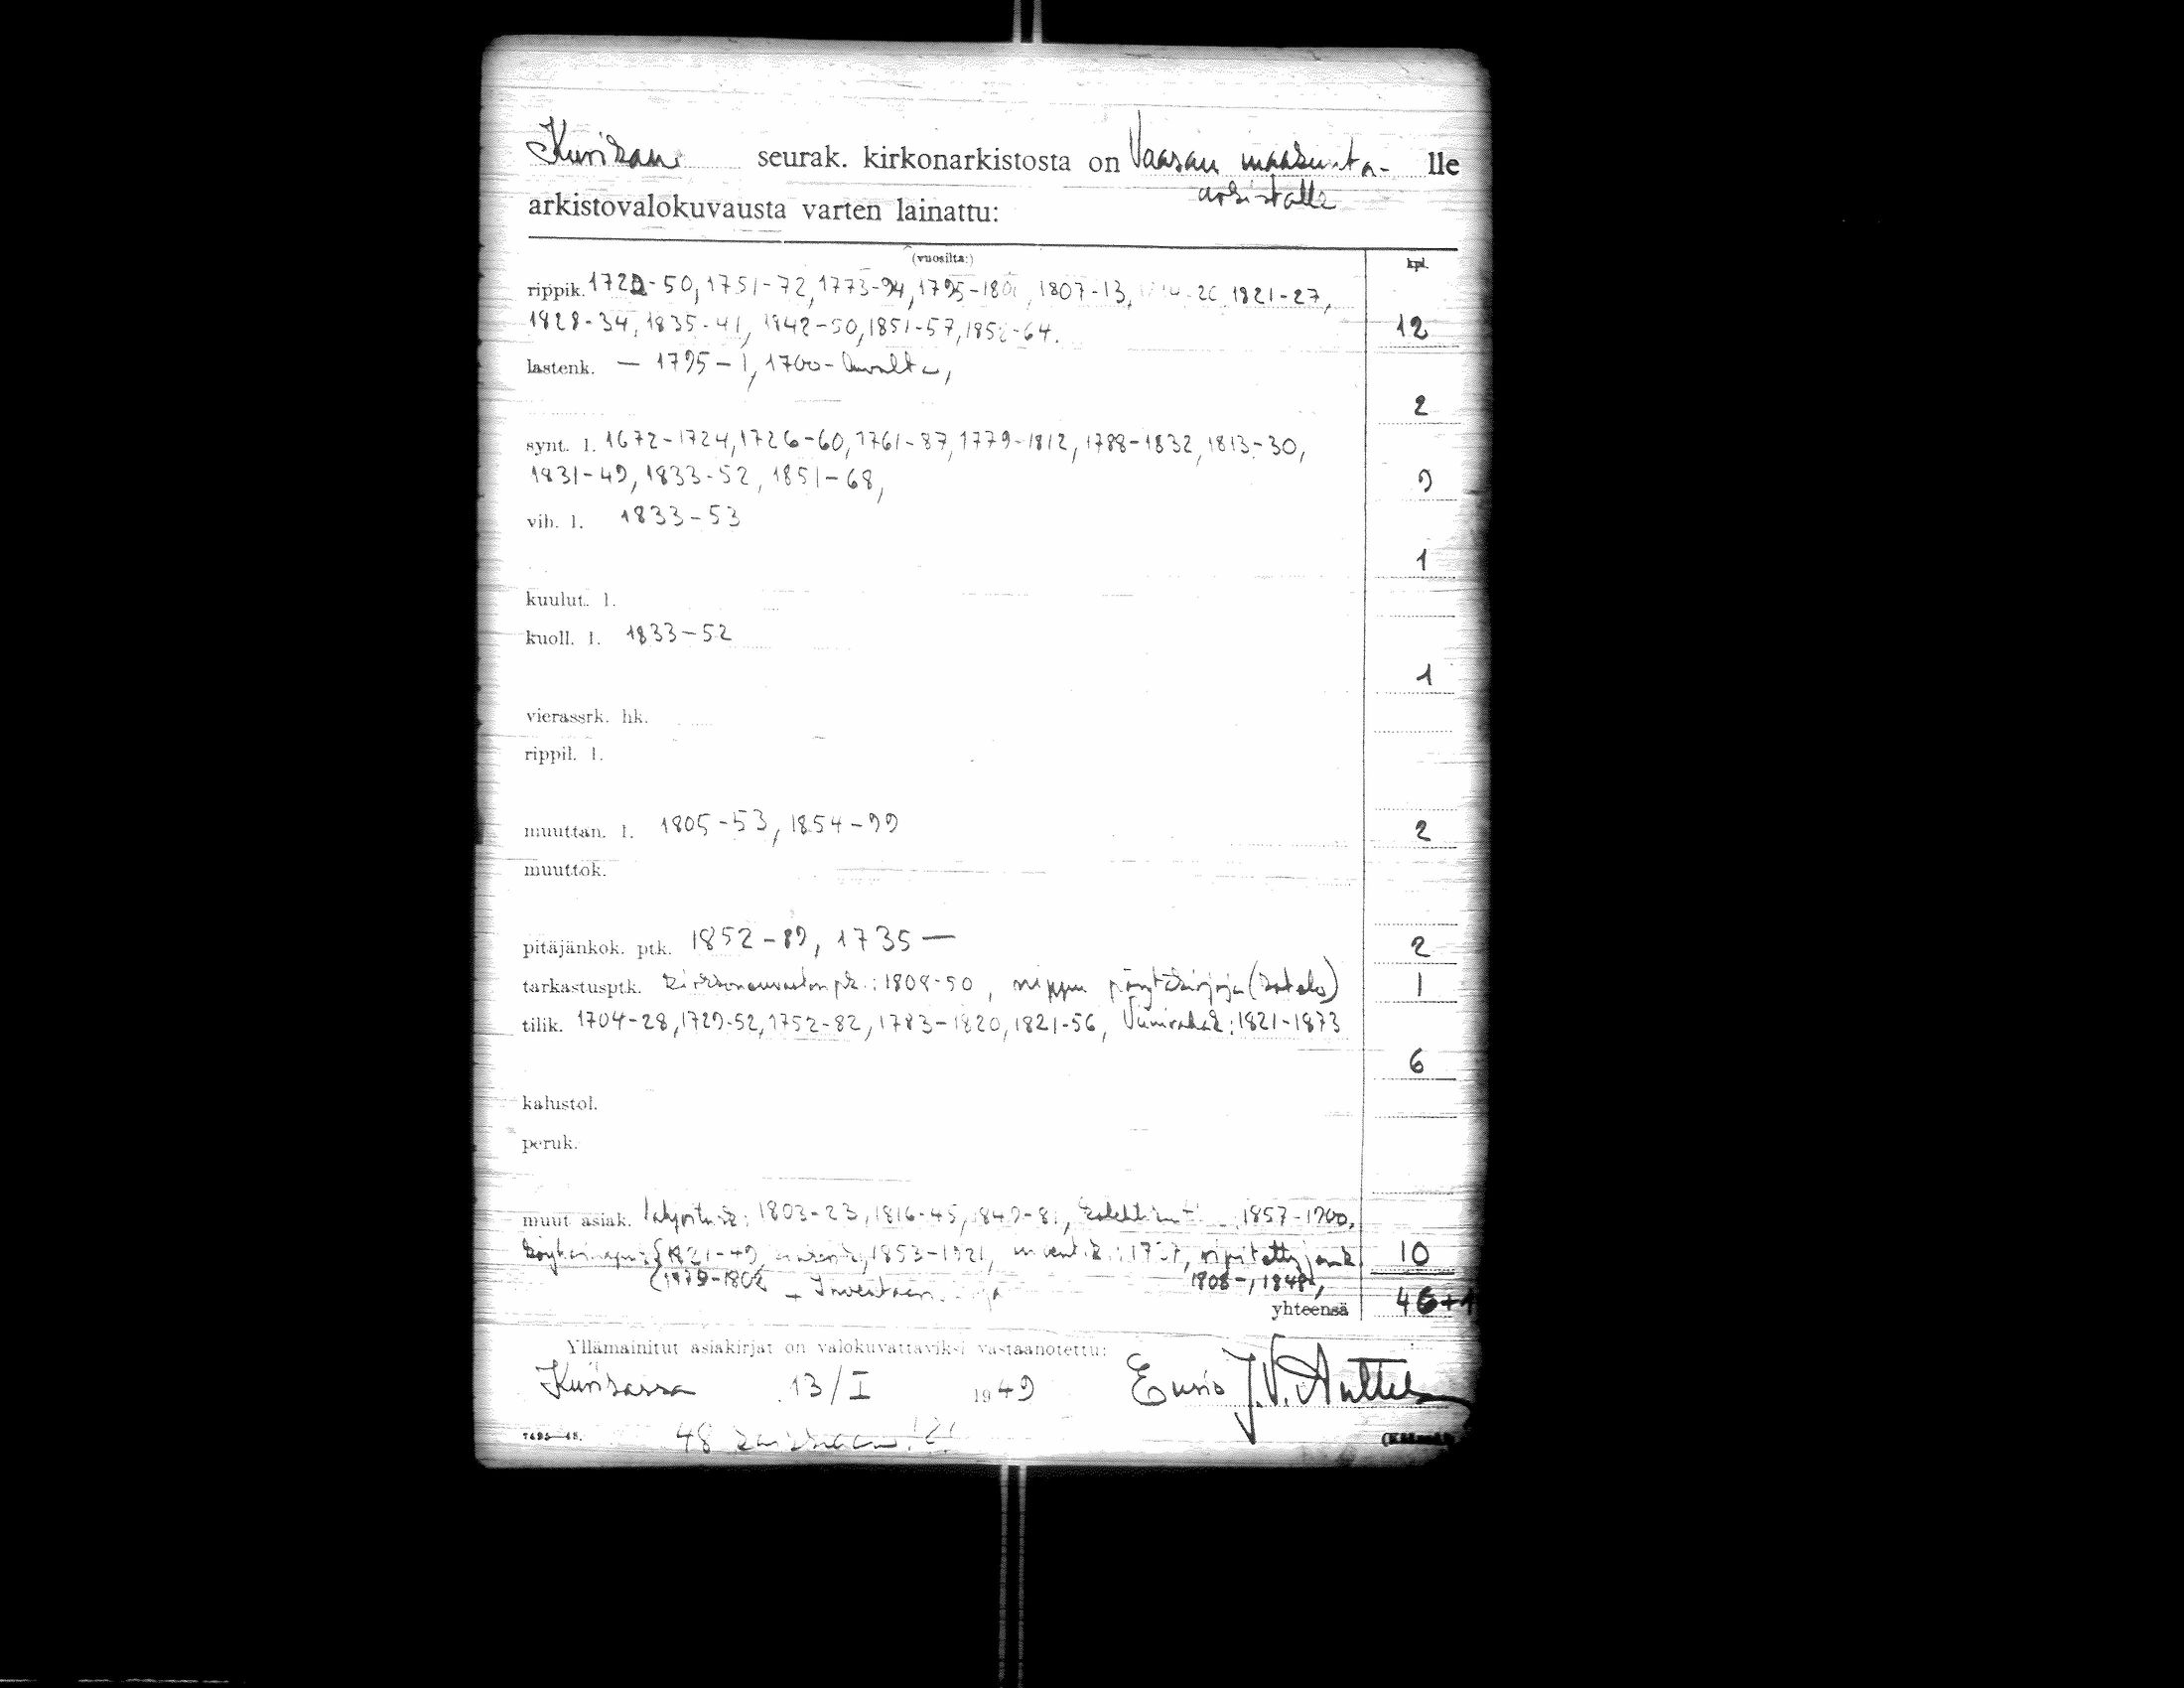 Kurikan seurak. kirkonarkistosta on Vaasan maakunta- lle
arkistolle
arkistovalokuvausta varten lainattu:
(vuosilta:) kpl.
rippik. 1722-50, 1751-72, 1773-94, 1795-180 , 1807-13, 1821-27,
1828-34, 1835-41, 1842-50, 1851-57, 1858-64. 12
lastenk. — 1795-1, 1700-luvulta,
2
synt. l. 1672-1724, 1726-60, 1761-87, 1779-1812, 1788-1832, 1813-30,
1831-49, 1833-52, 1851-68, 9
vih. l. 1833-53
1
kuulut. l.
kuoll. l. 1833-52
1
vierassrk. hk.
rippil. l.
muuttan. l. 1805-53, 1854-99 2
muuttok.
pitäjänkok. ptk. 1852-89, 1735— 2
tarkastusptk. kirkonneuvoston pk.: 1808-50, nippu pöytäkirjoja (kotelo) 1
tilik. 1704-28, 1729-52, 1752-82, 1783-1820, 1821-56, Viinirahak: 1821-1873
6
kalustol.
peruk.
muut asiak. 1803-23, 1816-45, 1849-81, 1857-1900,
1821-49, 1853-1921, 10
1808-, 1848,
yhteensä 46+1
Yllämainitut asiakirjat on valokuvattaviksi vastaanotettu:
Kurikassa 13/I 1949 J.V. Anttila
48